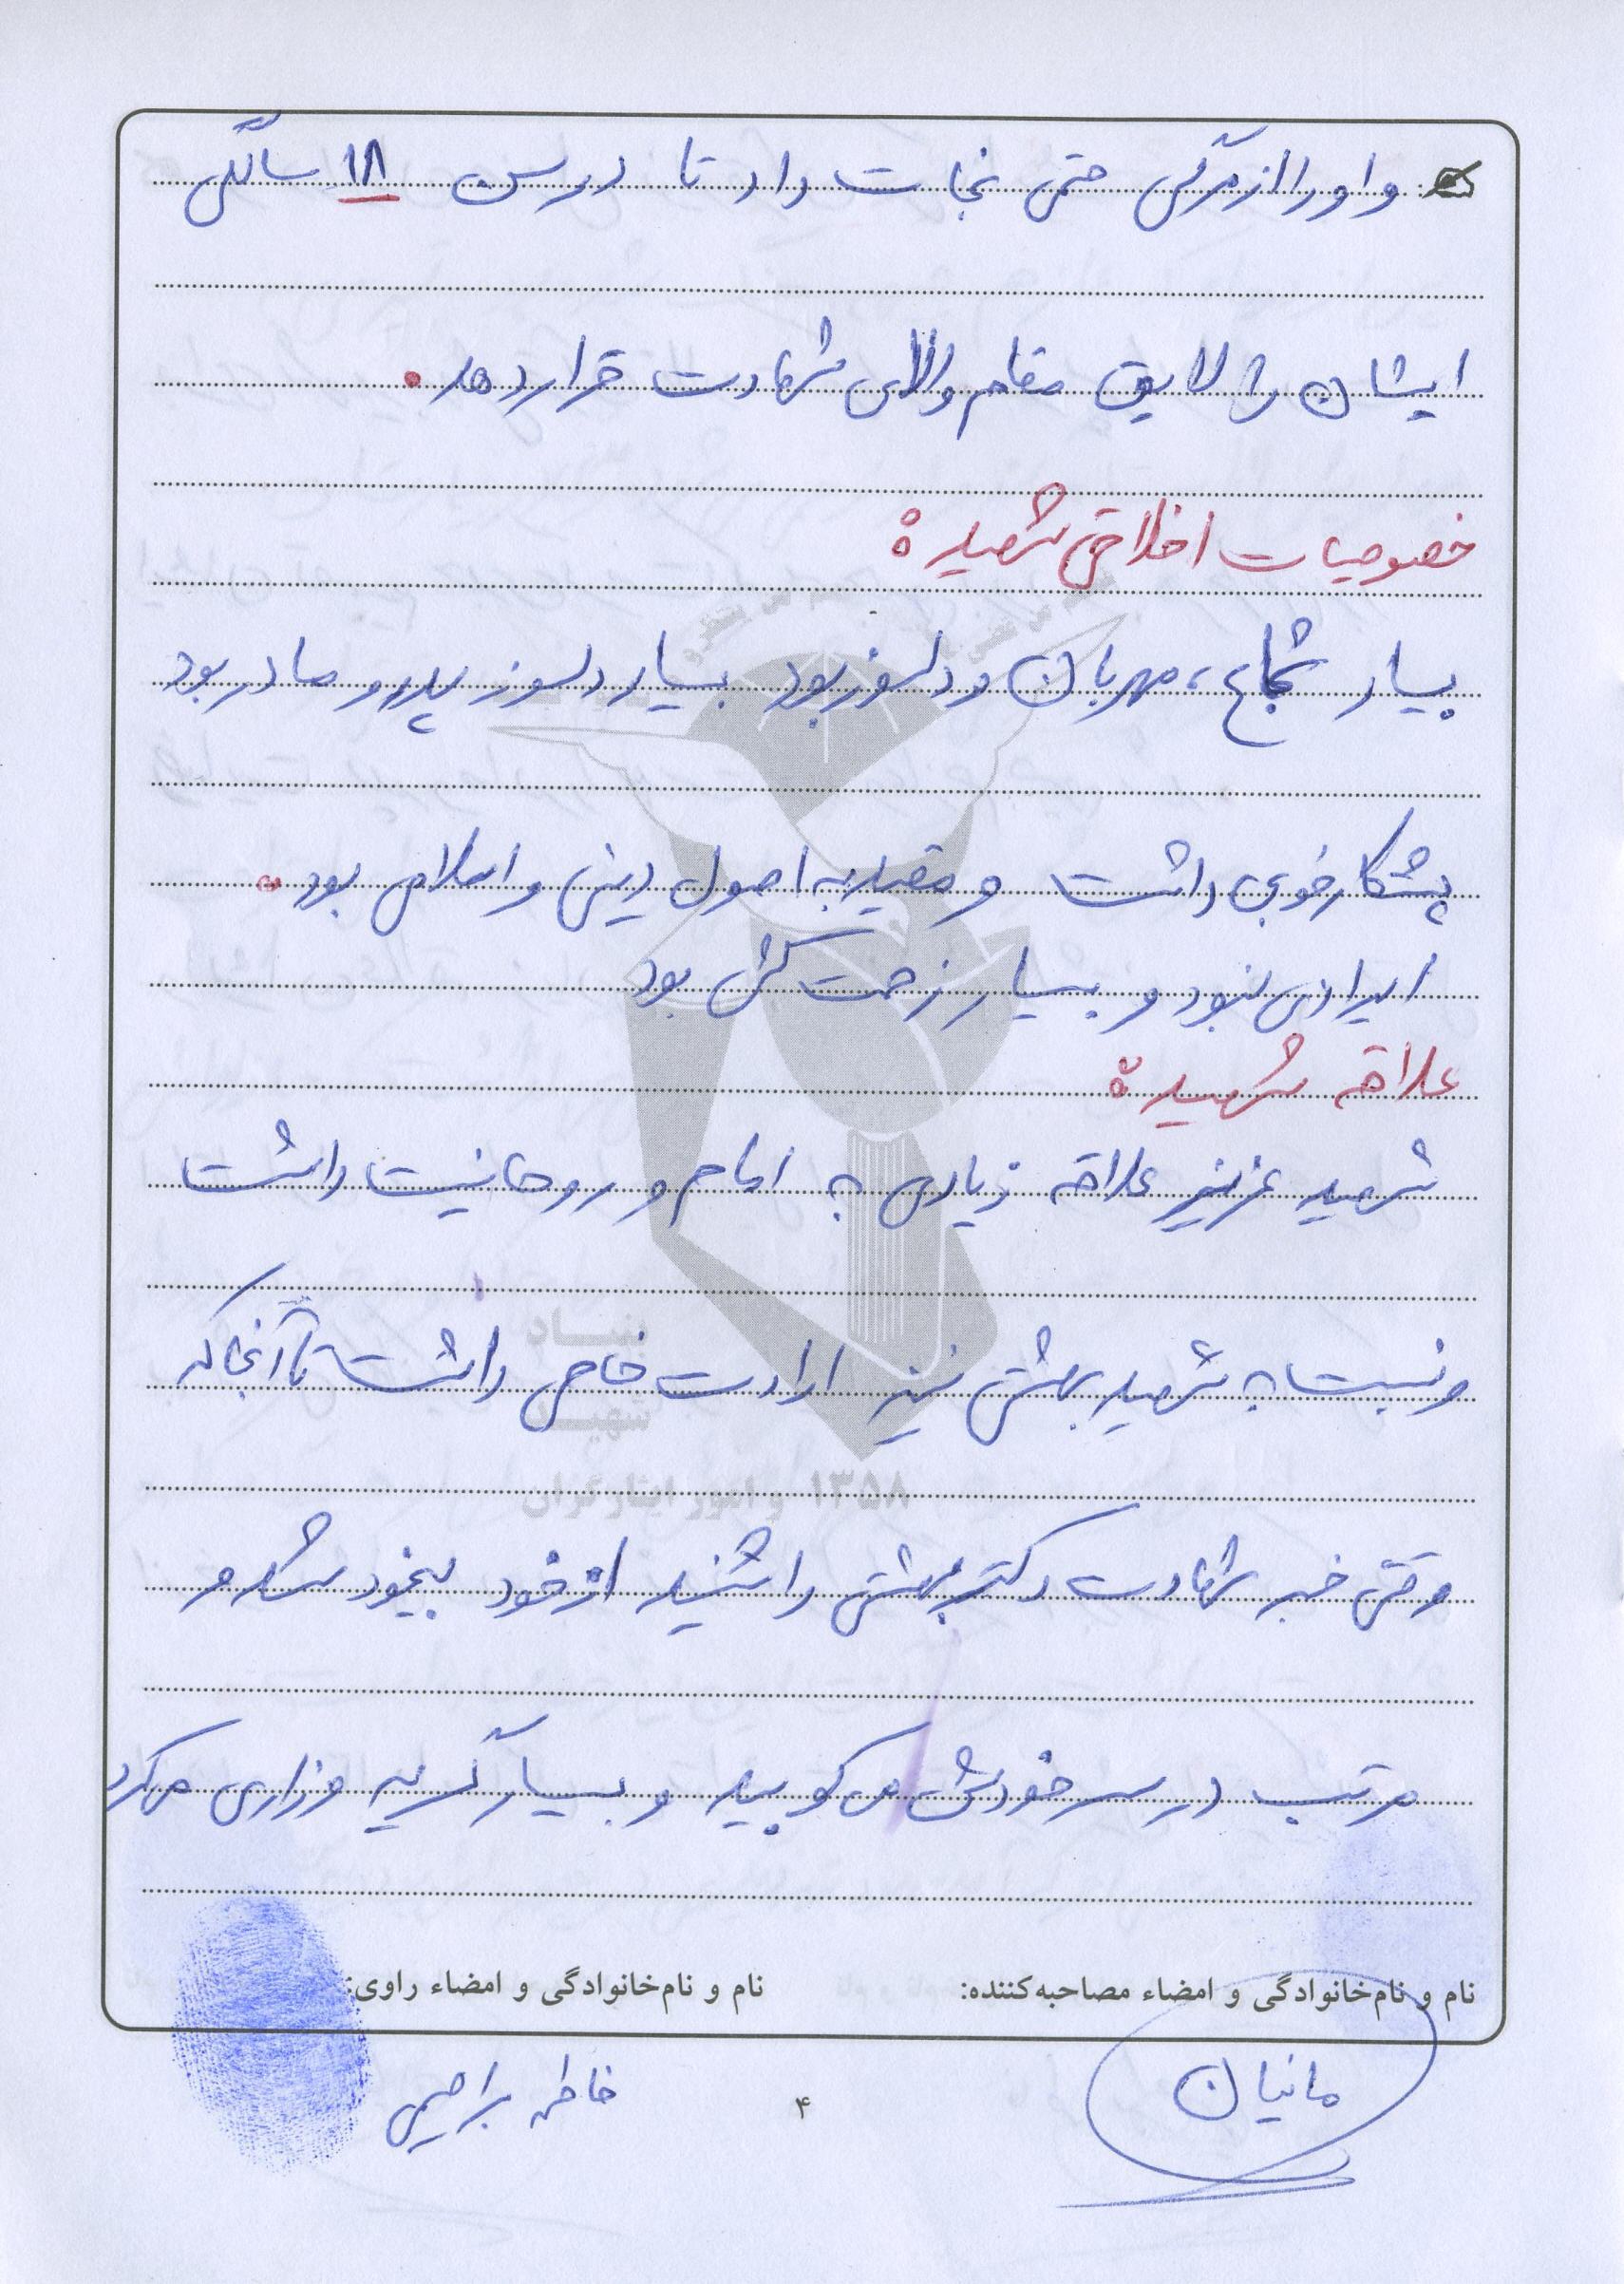 و او را از مرگی حتمی نجات داد تا در سن ۱۸ سالگی
ایشان را لایق مقام والای شهادت قرار دهد.
خصوصیات اخلاقی شهید:
بسیار شجاع، مهربان و دلسوز بود بسیار دلسوز پدر و مادر بود
پشتکار خوبی داشت و مقید به اصول دینی و اسلامی بود.
ایرادی نبود و بسیار زحمت کش بود
علاقه شهید:
شهید عزیز علاقه زیادی به امام و روحانیت داشت
و نسبت به شهید بهشتی نیز ارادت خاصی داشت تا آنجا که
وقتی خبر شهادت دکتر بهشتی را شنید از خود بیخود شد و
مرتب در سر خودش می کوبید و بسیار گریه و زاری می کرد
بنیاد
شهید
و امور ایثارگران ۱۳۵۸
نام و نام‌خانوادگی و امضاء مصاحبه‌کننده:
نام و نام‌خانوادگی و امضاء راوی:
مانیان
۴